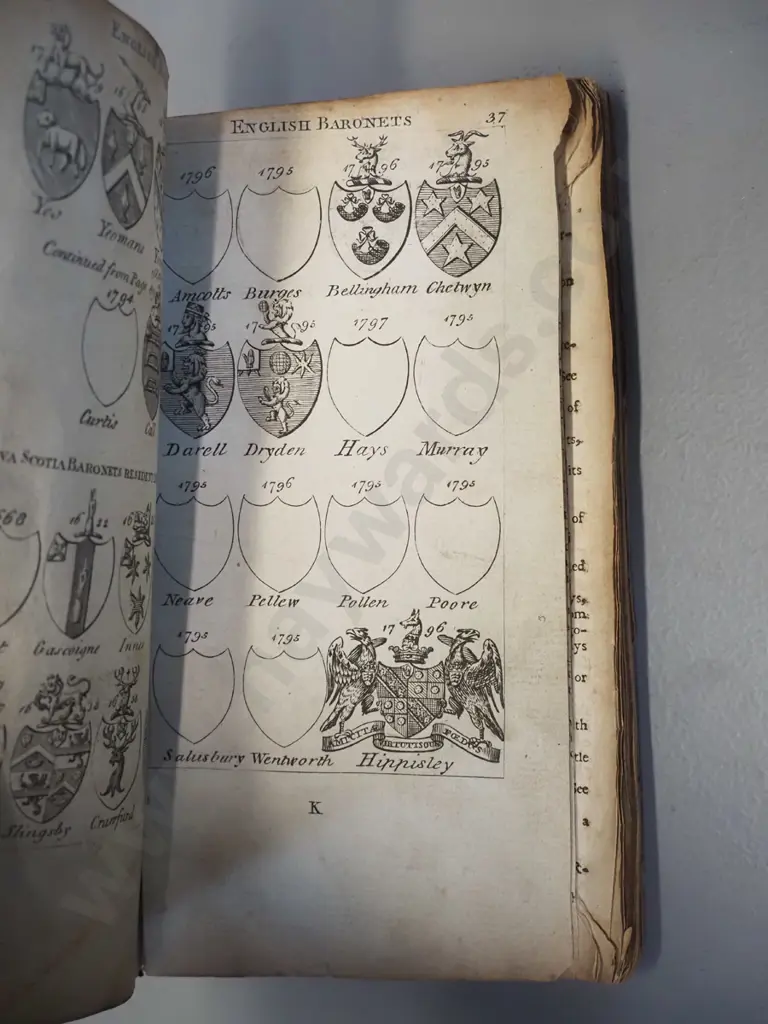 ENGLISH
Yeo
Yeomans
Continued from Page
1794
Curtis
SCOTIA BARONETS
16 22
Gascoigne
Slingsby
Crawfurd
ENGLISH BARONETS 37
1796 1795 1796 1795
Amcotts Burges Bellingham Chetwyn
1795 1795 1797 1795
Darell Dryden Hays Murray
1795 1796 1795 1795
Neave Pellew Pollen Poore
1795 1795 1796
AMICITIÆ VIRTUTISQUE FŒDUS
Salusbury Wentworth Hippisley
K